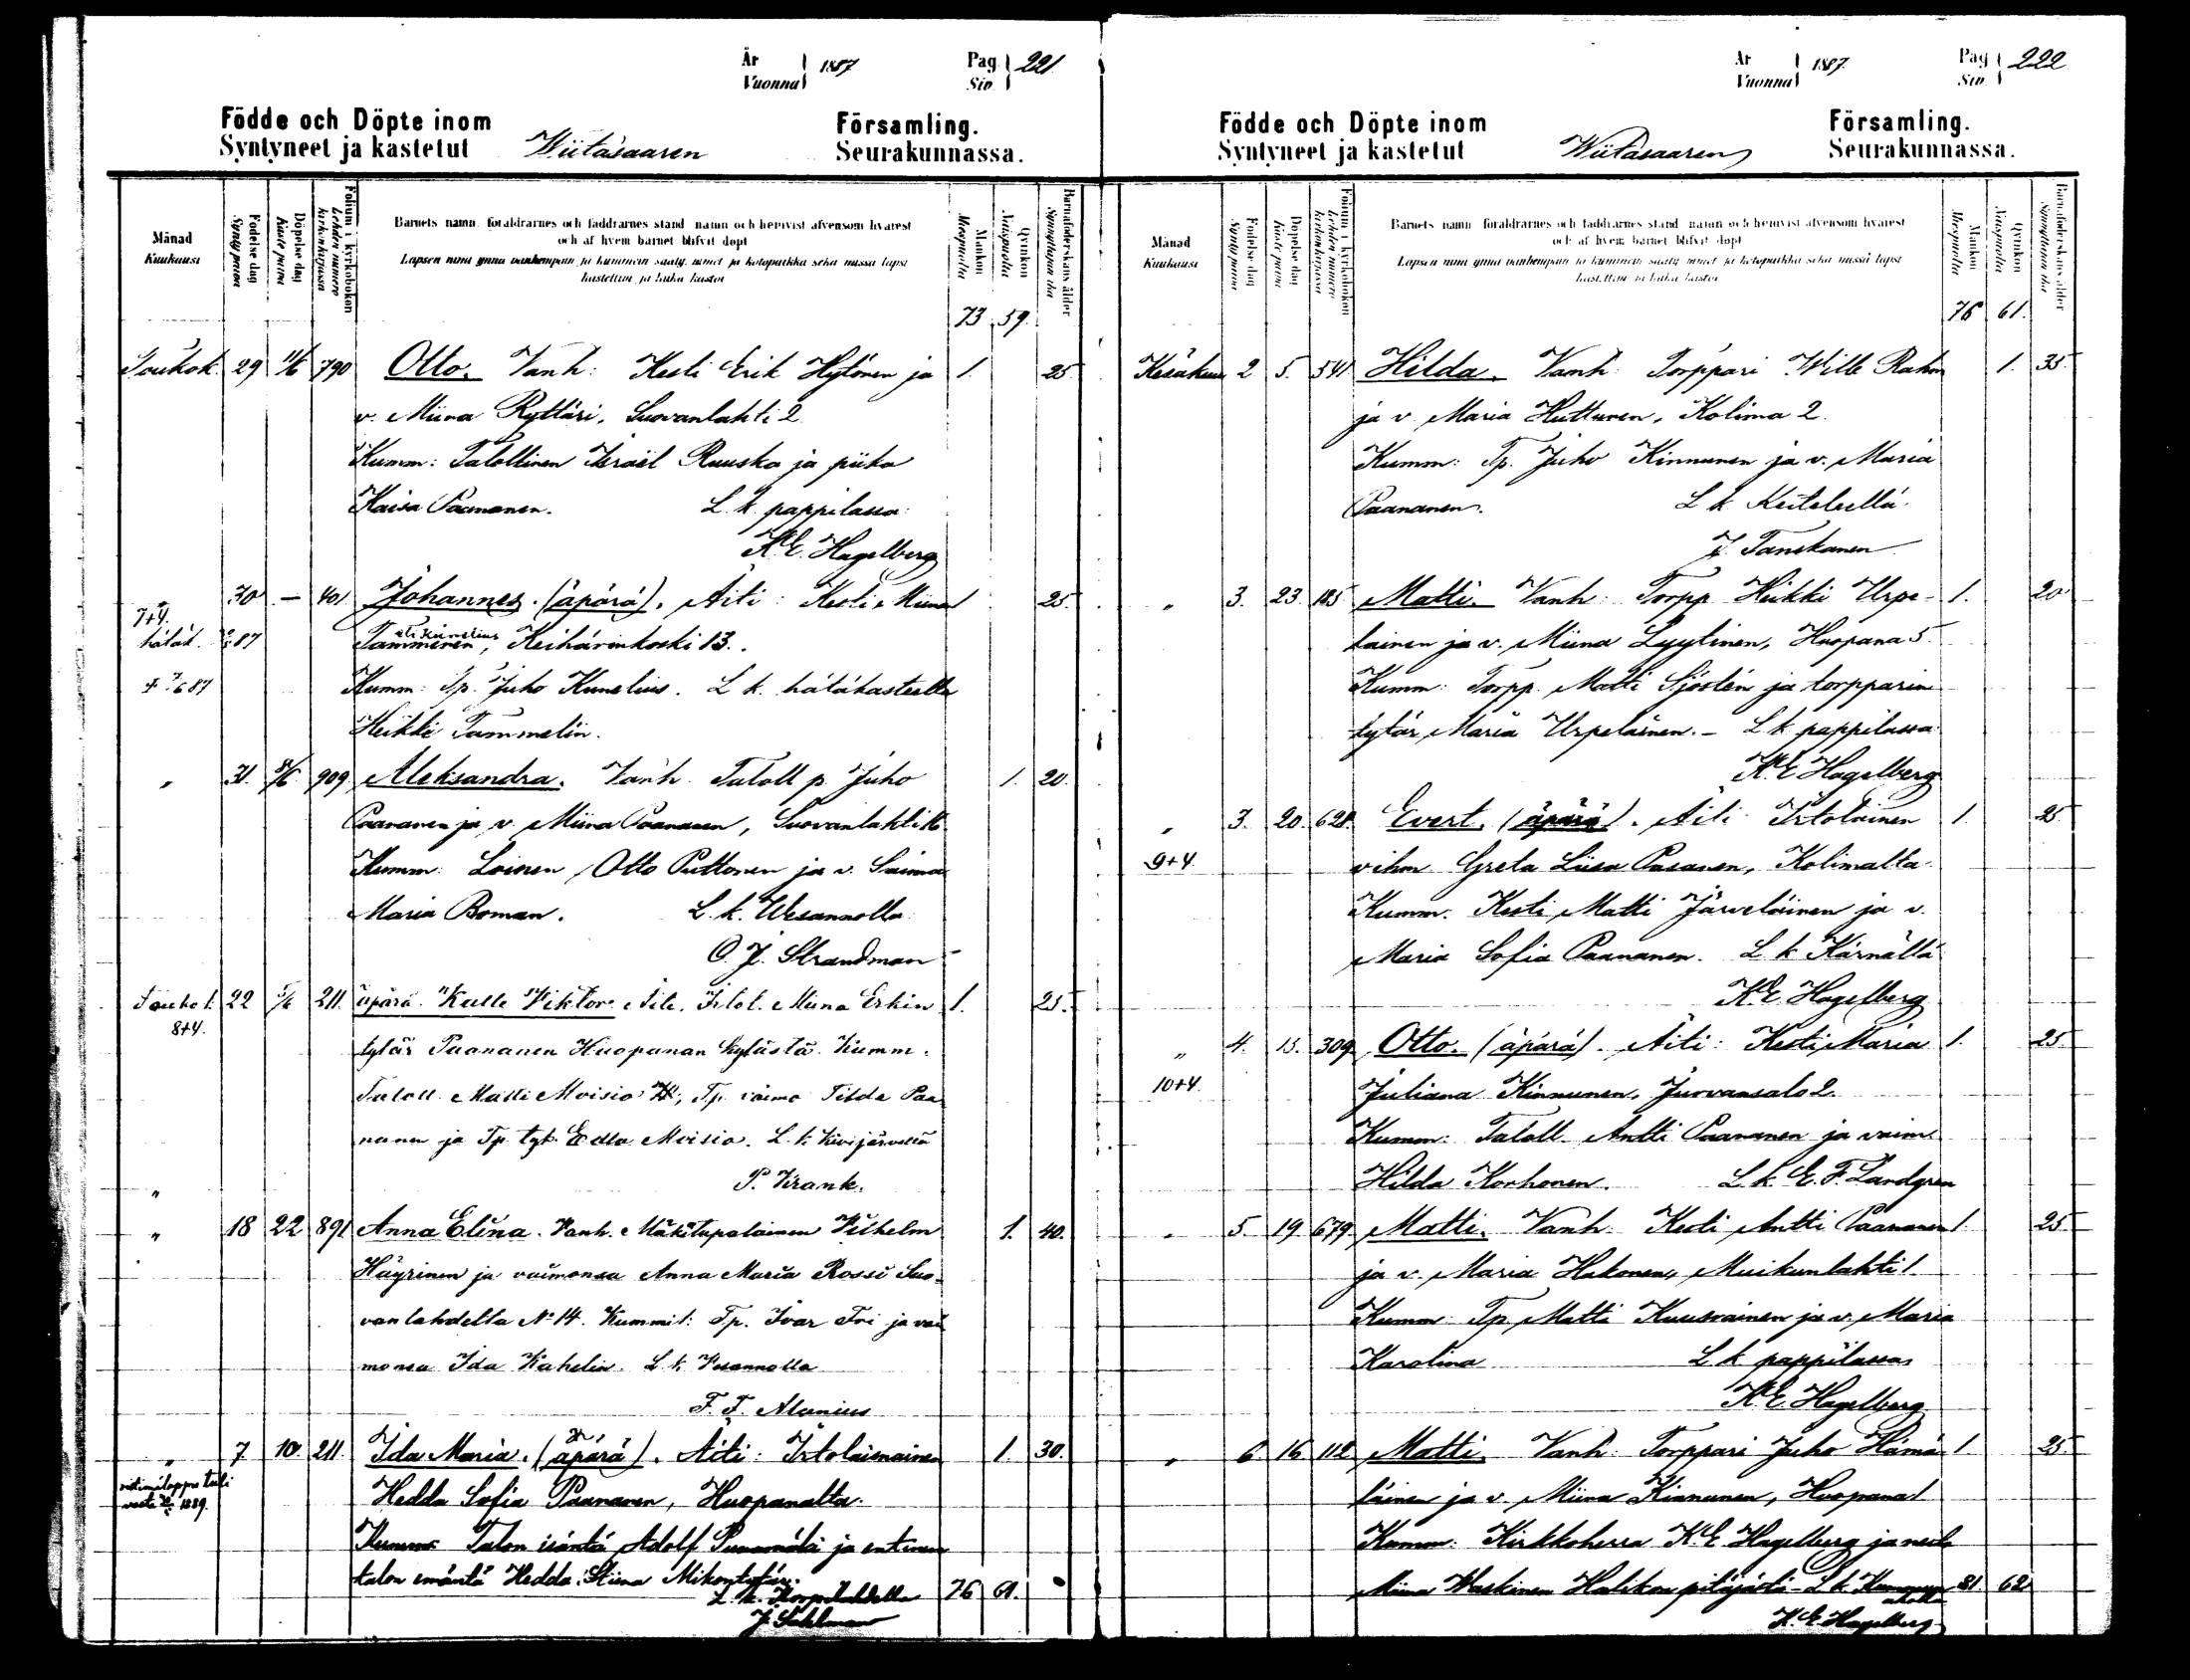 År Vuonna 1887 Pag. Siv. 221
Födde och Döpte inom Församling.
Syntyneet ja kastetut Wiitasaaren Seurakunnassa.
Månad Kuukausi
Födelse dag Synty päivä
Döpelse dag Kaste päivä
Folium i kyrkoboken Lehden numero kirkonkirjassa
Barnets namn, föräldrarnes och faddrarnes stånd, namn och hemvist äfvensom hvarest
och af hvem barnet blifvit döpt
Lapsen nimi ynnä vanhempain ja kummein sääty, nimet ja kotopaikka sekä missä lapsi
kastettiin ja kuka kastoi
Mankön Miespuolia
Qvinkön Naispuolia
Barnaföderskans ålder Synnyttäjän ikä
73 59.
Toukok. 29 11/6 790 Otto. Vanh: Kesti Erik Hytönen ja 1. 25
v. Miina Ryttäri, Suovanlahti 2
Kumm: Talollinen Israël Ruuska ja piika
Kaisa Paananen. L. k. pappilassa
K. E. Hagelberg
" 30 — 401 Johannes. (äpärä). Äiti: Kesti Miina 1 25.
7+4.
eli Kunelius
Tamminen, Keihärinkoski 13.
Kumm: Tp. Juho Kunelius. L. k. hätäkasteella
Heikki Tammelin.
" 31. 8/6 909 Aleksandra. Vanh. Taloll p Juho 1. 20.
Paananen ja v. Miina Paananen, Suovanlahti 16
Kumm: Loinen Otto Puttonen ja v. Saima
Maria Boman. L. k. Wesannolla
O. J. Strandman
Toukok. 22 1/6 211. äpärä. "Kalle Viktor" Äiti, Irtol. Miina Erkin 1. 25.
8+4.
tytär Paananen Huopanan kylästä. Kumm.
Taloll. Matti Moisio, Tp. vaimo Tilda Paa
nanen ja Tp. tyt. Edla Moisio. L. k. Kivijärvellä
P. Krank.
" 18 22 891 Anna Elina. Vanh. Mäkitupalainen Vilhelm 1. 40.
Häyrinen ja vaimonsa Anna Maria Rossi Suo-
vanlahdelta No 14. Kummit: Tp. Ivar Foi ja vai
monsa Ida Kahelin. L. k. Vesannolla
F. F. Alanius
" 7 10 211. Ida Maria. (äpärä). Äiti: Irtolaisnainen 1. 30.
1889.
Hedda Sofia Paananen, Huopanalta.
Kumm: Talon isäntä Adolf Punamäki ja entinen
talon emäntä Hedda Stiina Mikontytär.
L. k. Korpilahdella 76 61.
J. Sahlman
År Vuonna 1887. Pag. Siv. 222
Födde och Döpte inom Församling.
Syntyneet ja kastetut Wiitasaaren Seurakunnassa.
Månad Kuukausi
Födelse dag Synty päivä
Döpelse dag Kaste päivä
Folium i kyrkoboken Lehden numero kirkonkirjassa
Barnets namn, föräldrarnes och faddrarnes stånd, namn och hemvist äfvensom hvarest
och af hvem barnet blifvit döpt
Lapsen nimi ynnä vanhempain ja kummein sääty, nimet ja kotopaikka sekä missä lapsi
kastettiin ja kuka kastoi
Mankön Miespuolia
Qvinkön Naispuolia
Barnaföderskans ålder Synnyttäjän ikä
76 61.
Kesäkuu 2 5. 541 Hilda. Vanh: Torppari Wille Rahm 1. 35.
ja v. Maria Hutturen, Kolima 2.
Kumm: Tp. Juho Kinnunen ja v. Maria
Paananen. L k Keiteleellä.
J. Tanskanen
" 3. 23. 185 Matti. Vanh: Torpp Heikki Urpe- 1. 20
lainen ja v. Miina Lyytinen, Huopana 5.
Kumm: Torpp. Matti Sjöstén ja torpparin
tytär Maria Urpelainen. – L k pappilassa
K. E. Hagelberg
" 3. 20. 628. Evert. (äpärä). Äiti Irtolainen 1. 25.
9+4.
vihm Greta Liisa Pasanen, Kolimalta
Kumm. Kesti Matti Järveläinen ja v.
Maria Sofia Paananen. L k Kärnällä
K. E. Hagelberg
" 4. 15. 309. Otto. (äpärä). Äiti: Kesti Maria 1. 25.
10+4.
Juliana Kinnunen, Juovansalo 2.
Kumm: Taloll. Antti Paananen ja vaim.
Hilda Korhonen. L. k. E. F. Landgren
" 5. 19 679. Matti. Vanh. Kesti Antti Paananen 1. 25.
ja v. Maria Hakonen, Muikunlahti 1.
Kumm: Tp Matti Kuusrainen ja v. Maria
Karolina L k pappilassa
K. E. Hagelberg
" 6. 16 112 Matti. Vanh: Torppari Juho Hämä 1 25
läinen ja v. Miina Kinnunen, Huopana 1
Kumm: Kirkkoherra K. E. Hagelberg ja neiti
Miina Waskinen Halikon pitäjästä – L k 81 62
K. E. Hagelberg